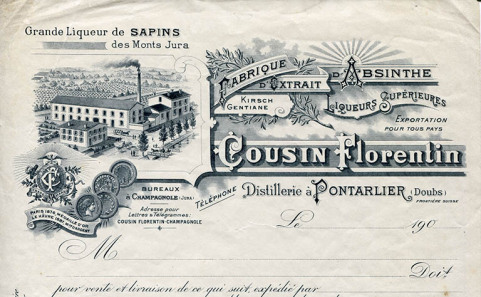 Grande Liqueur de SAPINS
des Monts Jura
FABRIQUE
D'EXTRAIT
D'ABSINTHE
KIRSCH
GENTIANE
LIQUEURS SUPÉRIEURES
EXPORTATION
POUR TOUS PAYS
COUSIN Florentin
Distillerie à PONTARLIER (Doubs)
FRONTIÈRE SUISSE
BUREAUX
à CHAMPAGNOLE (JURA)
Adresse pour
Lettres & Télégrammes:
COUSIN FLORENTIN-CHAMPAGNOLE
TÉLÉPHONE
PARIS 1878 MÉDAILLE D'OR
Le 190
M
Doit
pour vente et livraison de ce qui suit, expédié par